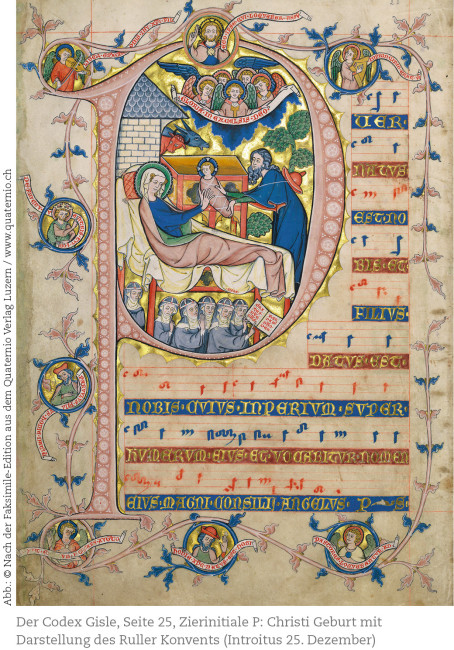 Abb.: © Nach der Faksimile-Edition aus dem Quaternio Verlag Luzern / www.quaternio.ch
IN EXCELSIS DEO
P
VER
NATVS
EST NO
BIS ET
FILIVS
DATVS EST
NOBIS·CVIVS·INPERIVM·SVPER
HVMERVM·EIVS·ET·VOCABITVR·NOMEN
EIVS·MAGNI·CONSILII·ANGELVS·P S
Der Codex Gisle, Seite 25, Zierinitiale P: Christi Geburt mit
Darstellung des Ruller Konvents (Introitus 25. Dezember)